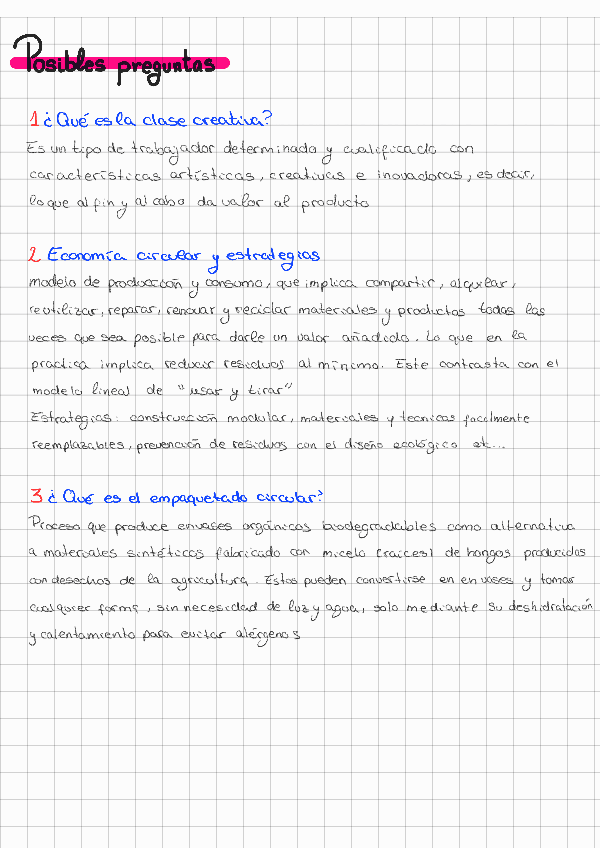 Posibles preguntas
1 ¿Qué es la clase creativa?
Es un tipo de trabajador determinado y cualificado con
características artísticas, creativas e inovadoras, es decir,
lo que al fin y al cabo da valor al producto
2 Economía circular y estrategias
modelo de producción y consumo, que implica compartir, alquilar,
reutilizar, reparar, renovar y reciclar materiales y productos todas las
veces que sea posible para darle un valor añadido. Lo que en la
practica implica reducir residuos al mínimo. Este contrasta con el
modelo lineal de "usar y tirar"
Estrategias: construcción modular, materiales y tecnicas facilmente
reemplazables, prevención de residuos con el diseño ecológico et...
3 ¿Qué es el empaquetado circular?
Proceso que produce envases orgánicos biodegradables como alternativa
a materiales sintéticos fabricado con micelo (raices) de hongos producidos
con desechos de la agricultura. Estos pueden convertirse en envases y tomar
cualquier forma, sin necesidad de luz y agua, solo mediante su deshidratación
y calentamiento para evitar alérgenos